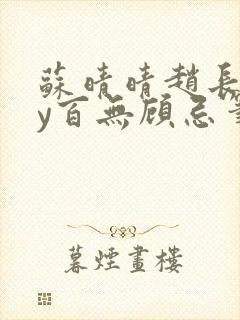 蘇晴晴趙長
y百無顧忌
暮煙畫樓